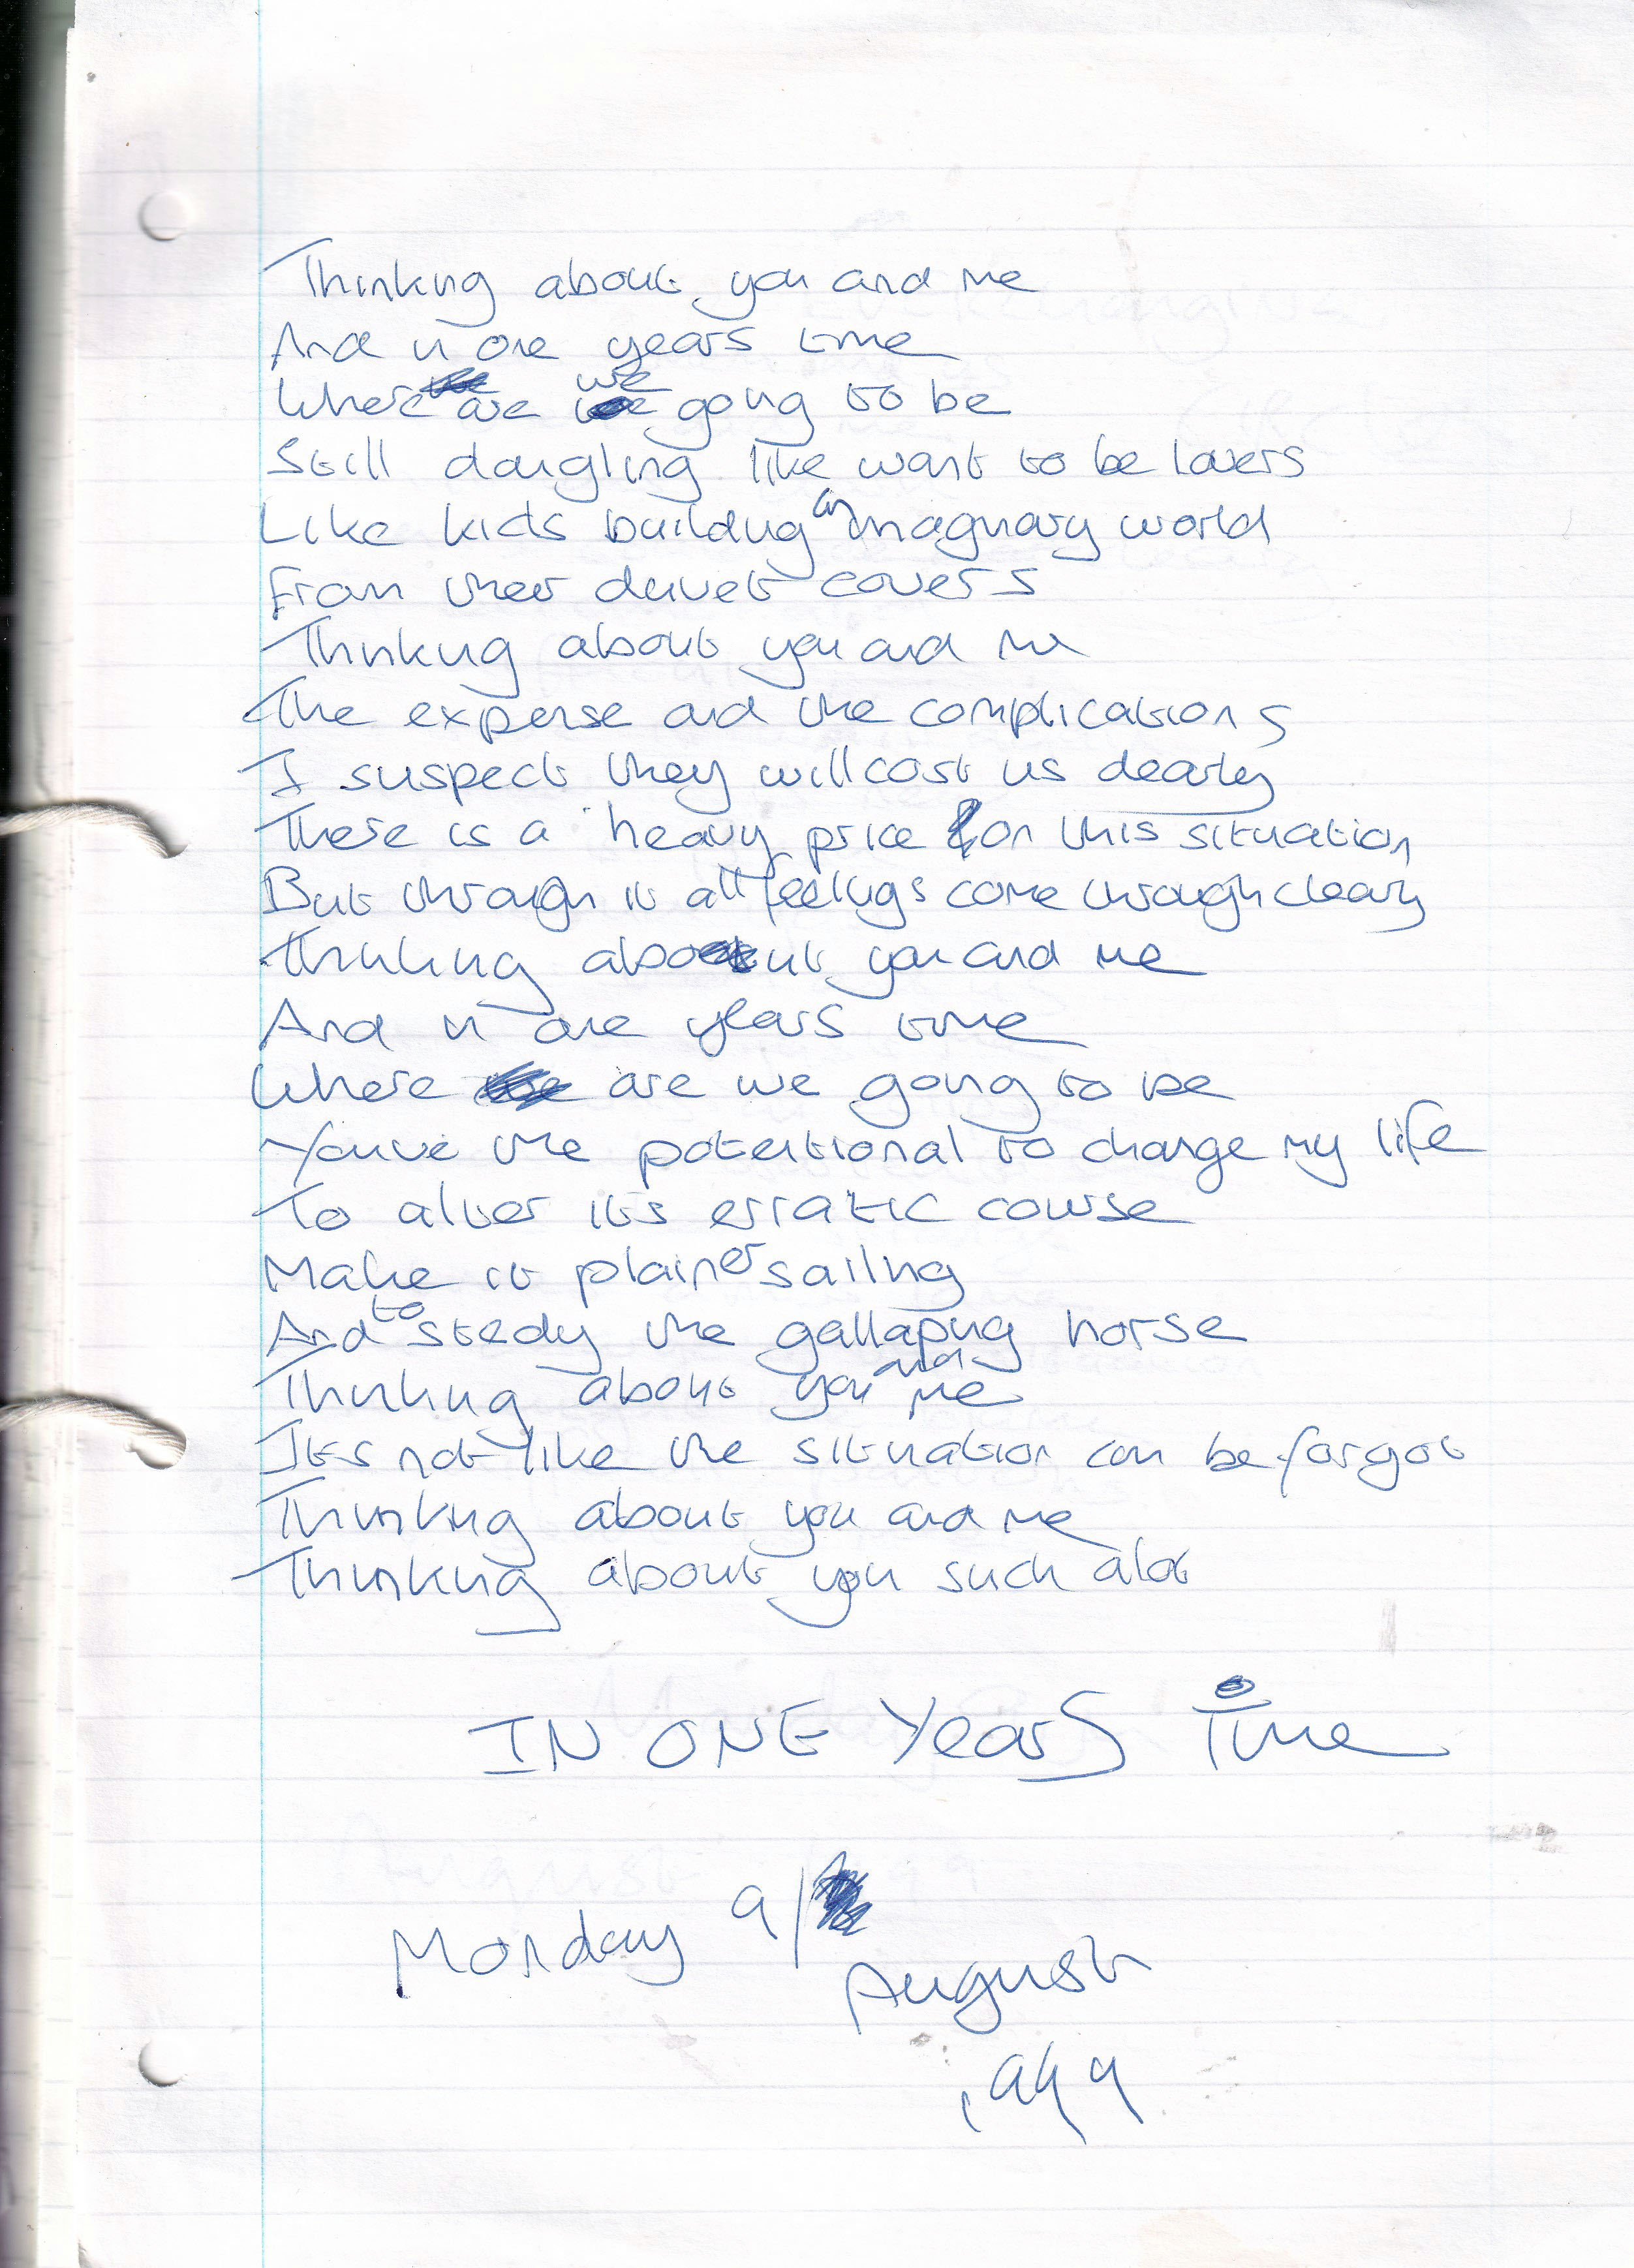 Thinking about you and me
And in one years time
Where are we going to be
Still dangling like want to be lovers
Like kids building an imaginary world
From their duvet covers
Thinking about you and me
The expense and the complications
I suspect they will cost us dearly
There is a heavy price for this situation
But through it all feelings come through clearly
Thinking about you and me
And in one years time
Where are we going to be
Youve the potentional to change my life
To alter its erratic course
Make it plainer sailing
And to stedy the gallaping horse
Thinking about you and me
Its not like the situation can be forgot
Thinking about you and me
Thinking about you such alot
IN ONE Years Time
Monday 9/
August
1999